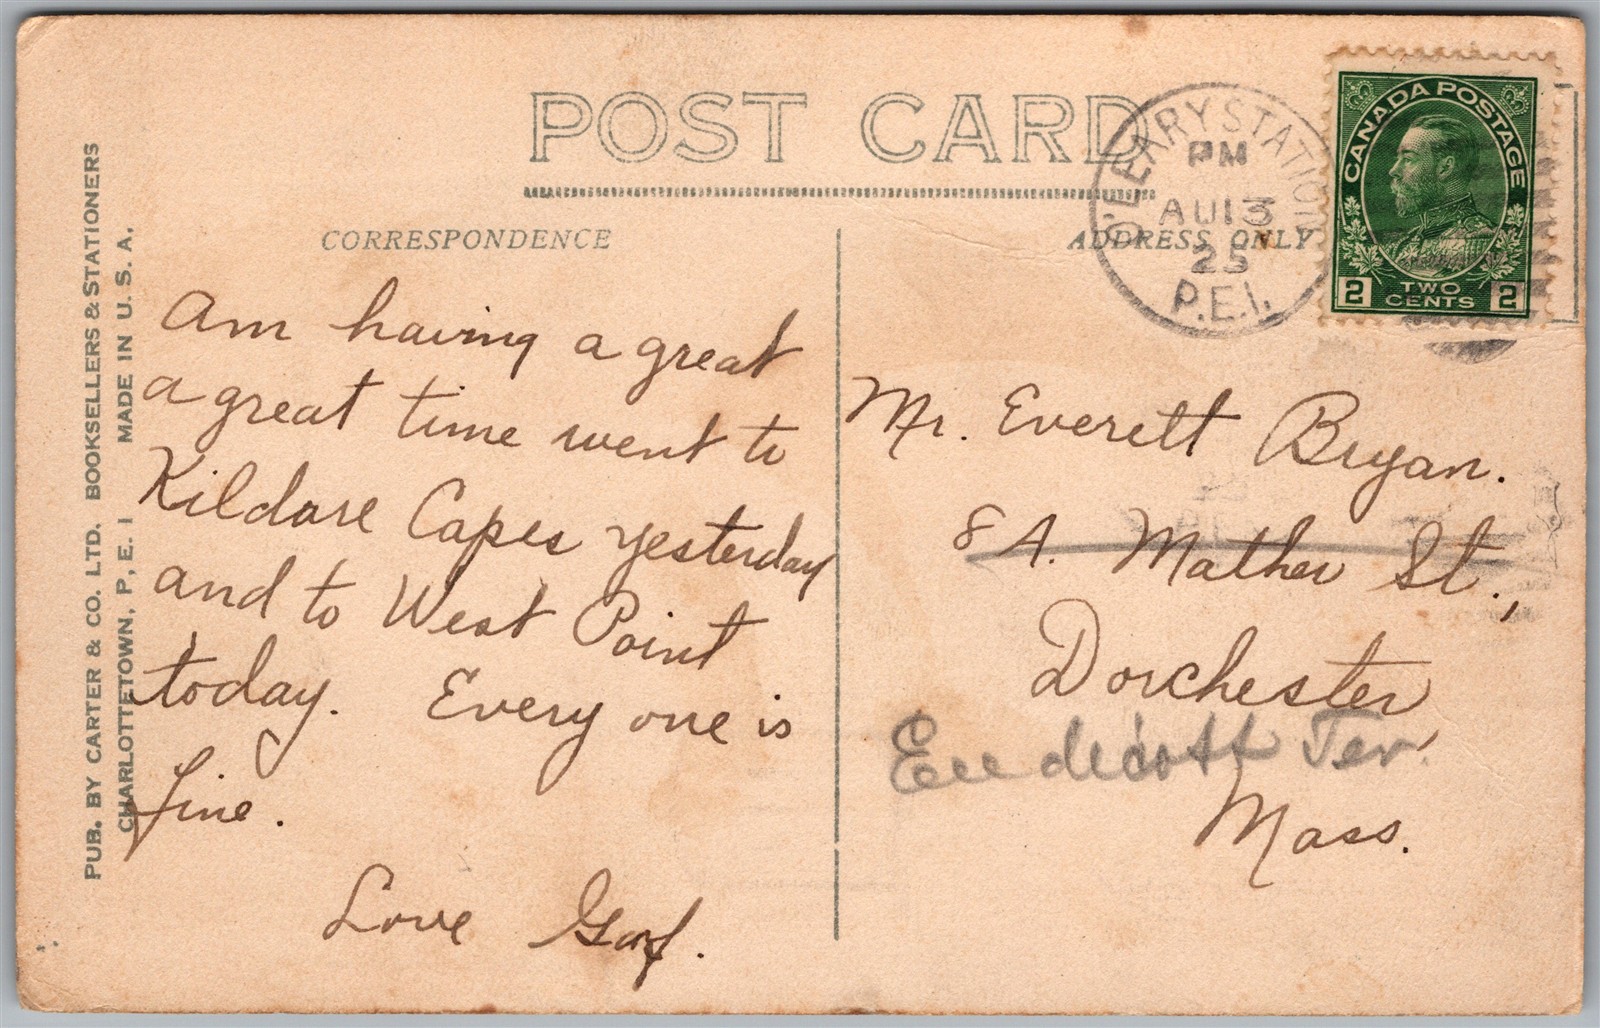 POST CARD
CORRESPONDENCE
ADDRESS ONLY
O'LEARY STATION
PM
AU 13
25
P.E.I.
CANADA POSTAGE
2 TWO CENTS 2
PUB. BY CARTER & CO. LTD. BOOKSELLERS & STATIONERS
CHARLOTTETOWN, P, E. I MADE IN U. S. A.
Am having a great
a great time went to
Kildare Capes yesterday
and to West Point
today. Every one is
fine.
Love
Mr. Everett Bryan.
8 A. Mather St.,
Dorchester,
Endicott Ter.
Mass.